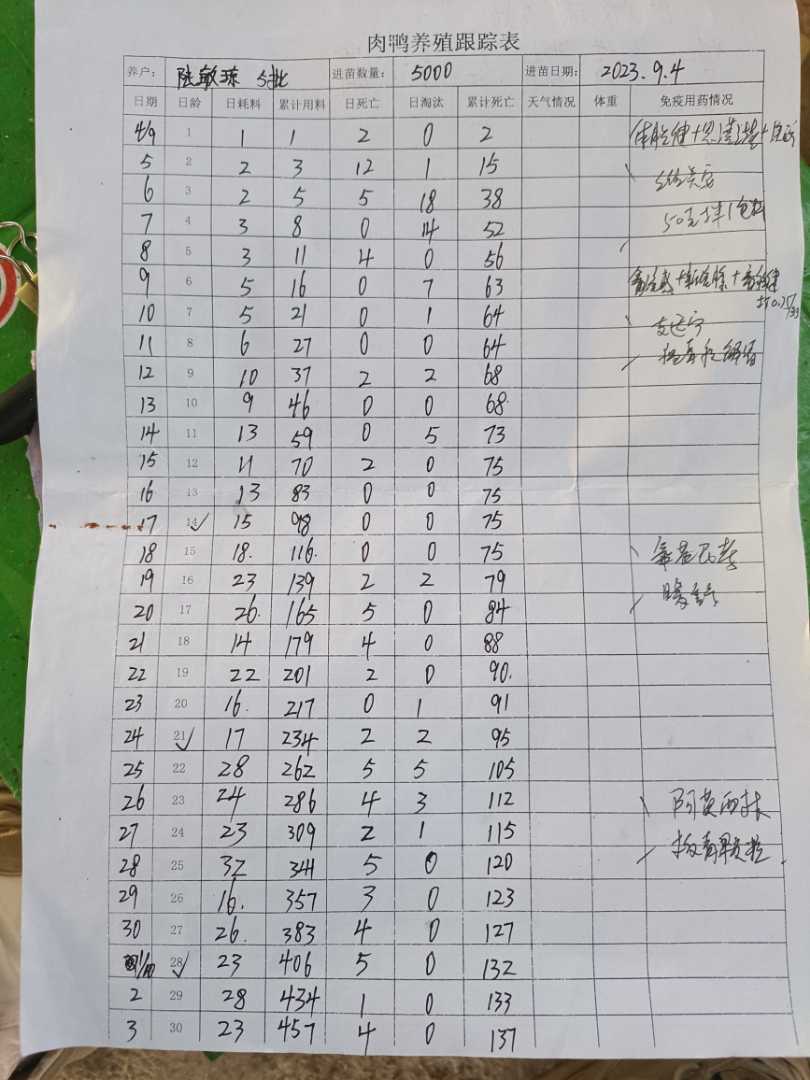 肉鸭养殖跟踪表
养户: 陆敏琼 5批 进苗数量: 5000 进苗日期: 2023.9.4
日期 日龄 日耗料 累计用料 日死亡 日淘汰 累计死亡 天气情况 体重 免疫用药情况
4/9 1 1 1 2 0 2
5 2 2 3 12 1 15
6 3 2 5 5 18 38
7 4 3 8 0 14 52 50 1
8 5 3 11 4 0 56
9 6 5 16 0 7 63
10 7 5 21 0 1 64
11 8 6 27 0 0 64
12 9 10 37 2 2 68
13 10 9 46 0 0 68.
14 11 13 59 0 5 73
15 12 11 70 2 0 75
16 13 13 83 0 0 75
17 14✓ 15 98 0 0 75
18 15 18. 116. 0 0 75
19 16 23 139 2 2 79
20 17 26. 165 5 0 84
21 18 14 179 4 0 88
22 19 22 201 2 0 90.
23 20 16. 217 0 1 91
24 21✓ 17 234 2 2 95
25 22 28 262 5 5 105
26 23 24 286 4 3 112 阿莫西林
27 24 23 309 2 1 115
28 25 32 341 5 0 120 板青颗粒
29 26 16. 357 3 0 123
30 27 26. 383 4 0 127
1/10 28✓ 23 406 5 0 132
2 29 28 434 1 0 133
3 30 23 457 4 0 137